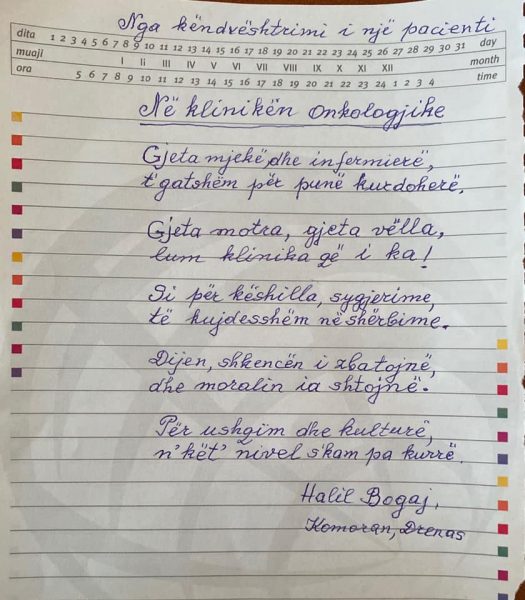 Nga këndvështrimi i një pacienti
dita 1 2 3 4 5 6 7 8 9 10 11 12 13 14 15 16 17 18 19 20 21 22 23 24 25 26 27 28 29 30 31 day
muaji I Ii III IV V VI VII VIII IX X XI XII month
ora 5 6 7 8 9 10 11 12 13 14 15 16 17 18 19 20 21 22 23 24 1 2 3 4 time
Në klinikën onkologjike
Gjeta mjekë, dhe infermierë,
t'gatshëm për punë kurdoherë.
Gjeta motra, gjeta vëlla,
lum klinika që i ka!
Ti për këshilla, sygjerime,
të kujdesshëm në shërbime.
Dijen, shkencën i zbatojnë,
dhe moralin ia shtojnë.
Për ushqim dhe kulturë,
n'kët' nivel s'kam pa kurrë.
Halil Bogaj,
Komoran, Drenas